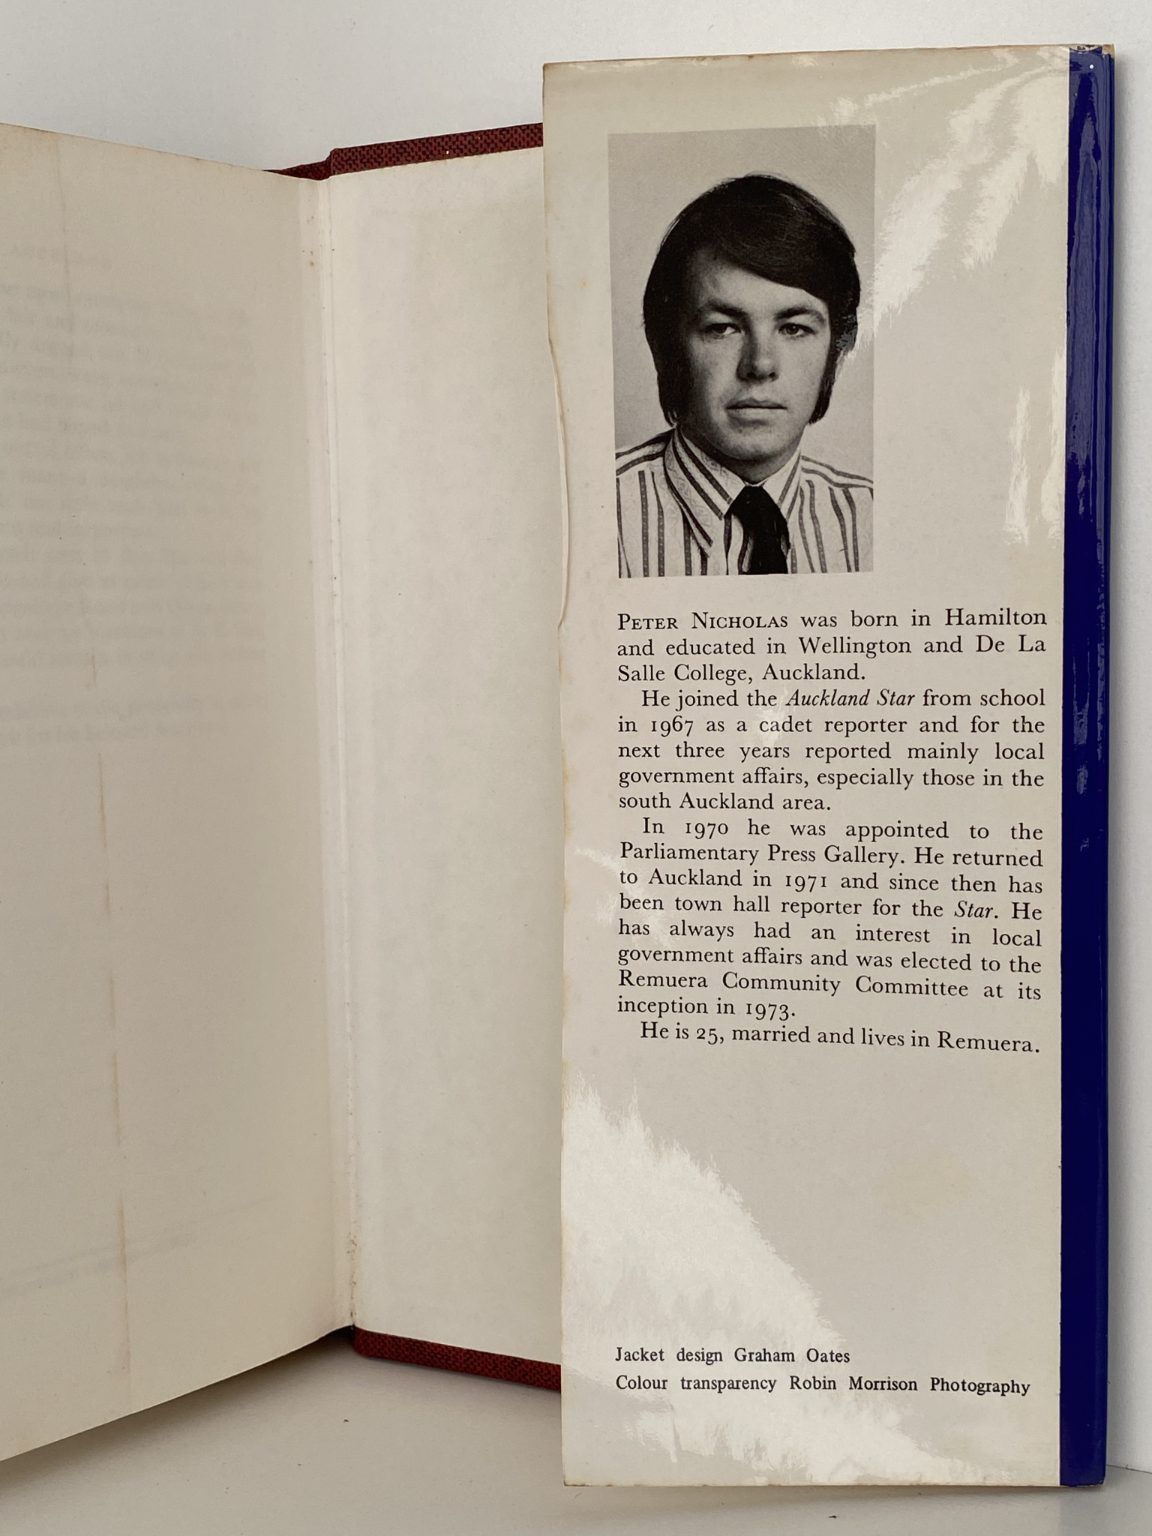 PETER NICHOLAS was born in Hamilton
and educated in Wellington and De La
Salle College, Auckland.
He joined the Auckland Star from school
in 1967 as a cadet reporter and for the
next three years reported mainly local
government affairs, especially those in the
south Auckland area.
In 1970 he was appointed to the
Parliamentary Press Gallery. He returned
to Auckland in 1971 and since then has
been town hall reporter for the Star. He
has always had an interest in local
government affairs and was elected to the
Remuera Community Committee at its
inception in 1973.
He is 25, married and lives in Remuera.
Jacket design Graham Oates
Colour transparency Robin Morrison Photography